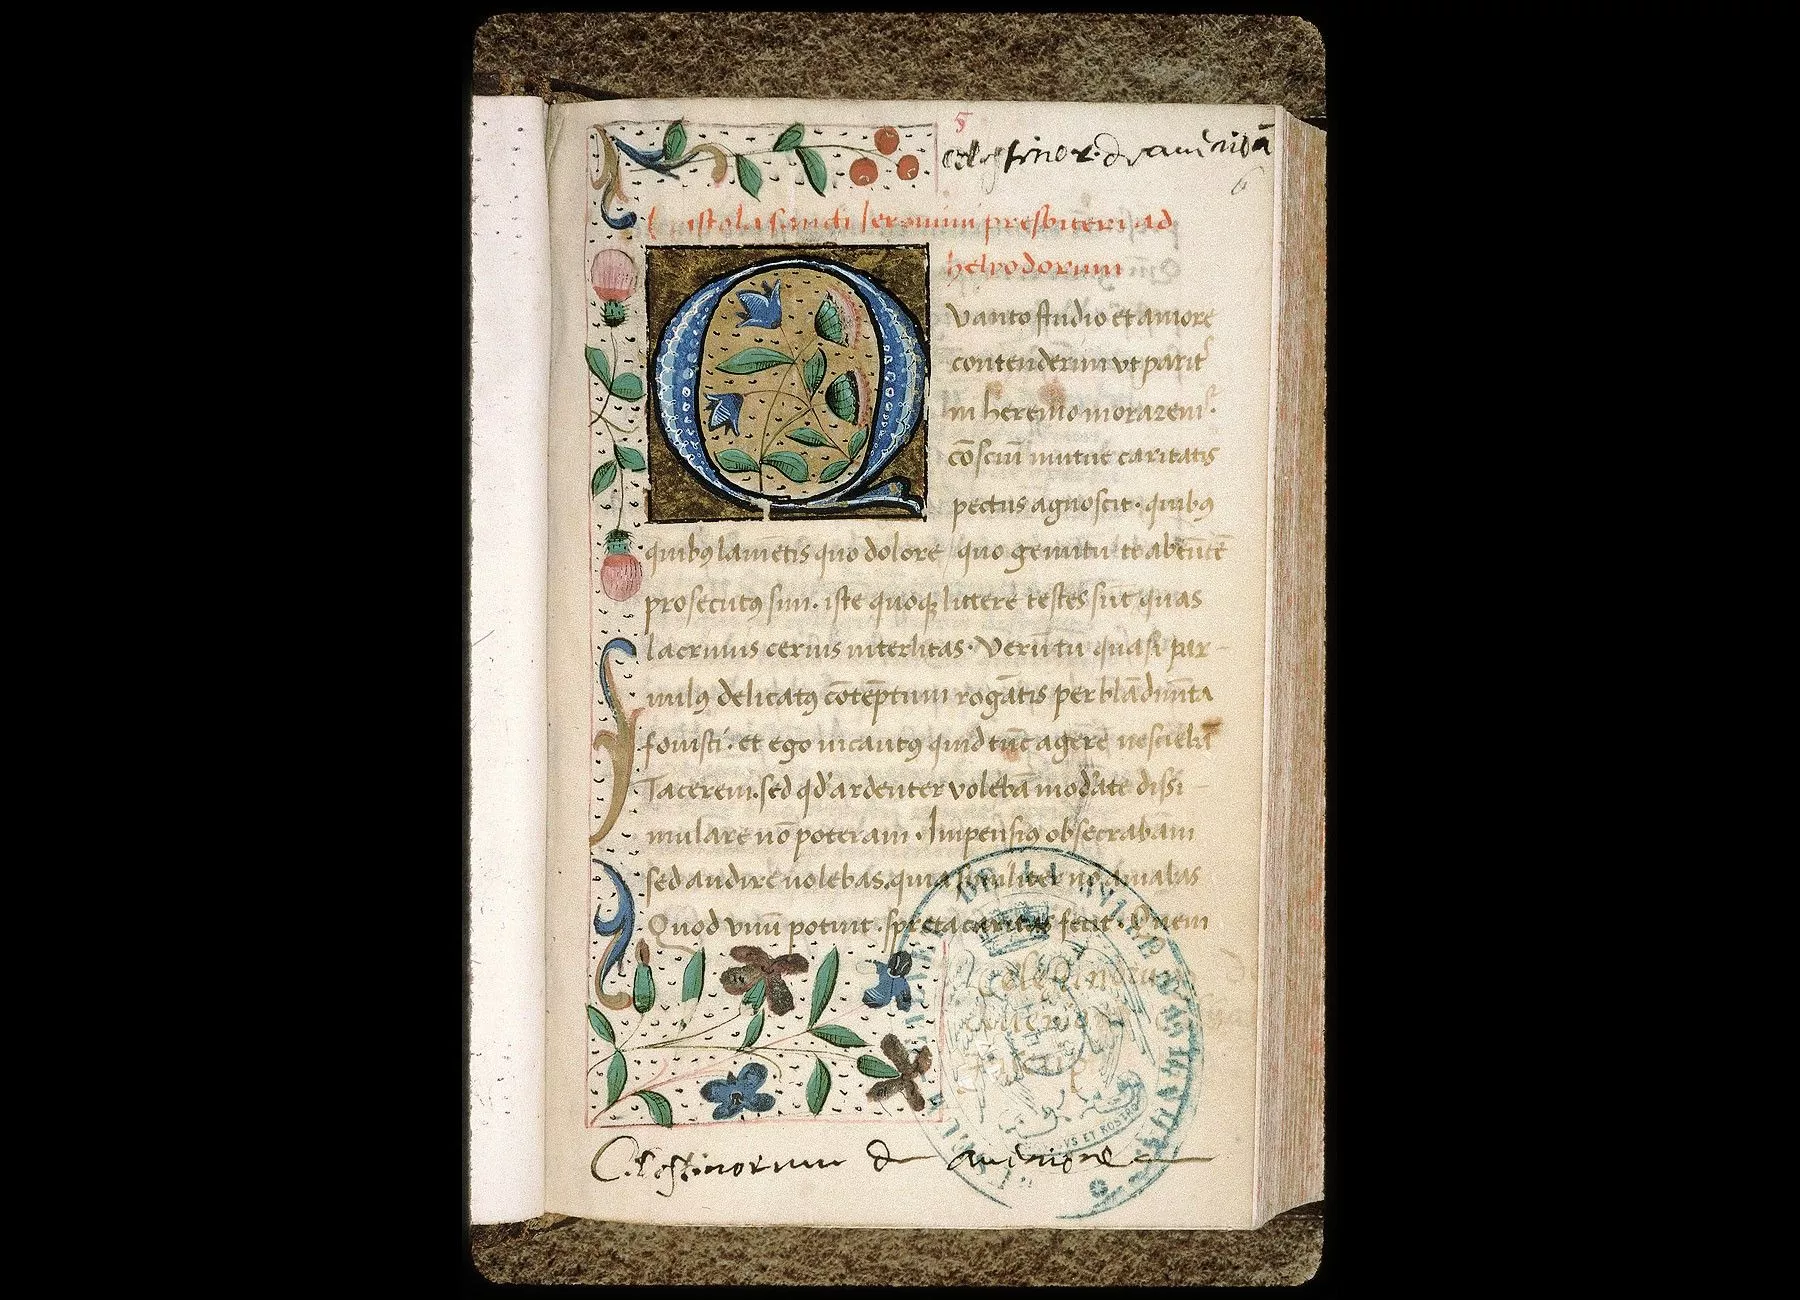 5
celestinor. de aviniōā
6
Epistola sancti Ieronimi presbiteri ad
heliodorum
Quanto studio et amore
contenderim vt parit᷑
in heremo moraremᷣ·
cōsciū mutue caritatis
pectus agnoscit· quibꝰ
quibꝰ lamētis quo dolore / quo gemitu te abeūtē
prosecutꝰ sim· iste quoqꝫ littere testes sūt quas
lacrimis cernis interlitas· Verūtū quasi par-
uulꝰ delicatꝰ cōtēptum rogātis per blādimēta
fouisti· et ego incautꝰ quid tūc agere nesciebā
Tacerem· sed qd' ardenter volebā mod'ate dissi-
mulare nō poteram · Impensiꝰ obsecrabam
sed audire nolebas· quia similiter nō amabas
Quod vnū potuit · spreta caritas fecit · Quem
Celestinorum
DE LA VILLE
VS ET ROSTRO
Celestinorum de auinione